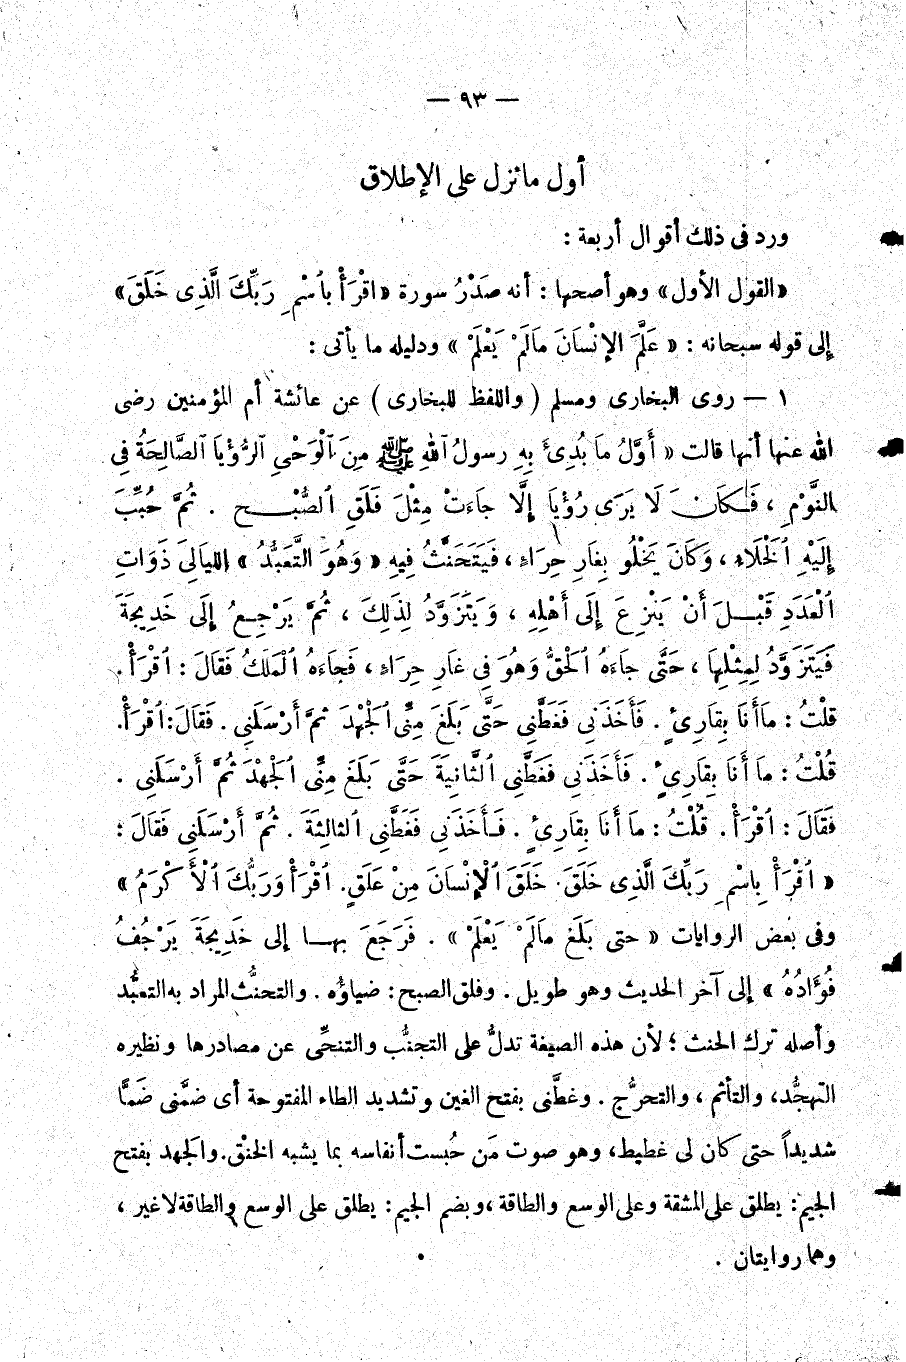 — ٩٣ —
أول ما نزل على الإطلاق
ورد فى ذلك أقوال أربعة :
«القول الأول» وهو أصحها : أنه صَدْرُ سورة «اقْرَأْ بِٱسْمِ رَبِّكَ الَّذِى خَلَقَ»
إلى قوله سبحانه : « عَلَّمَ الإنْسَانَ مَالَمْ يَعْلَمْ » ودليله ما يأتى :
١ — روى البخارى ومسلم ( واللفظ للبخارى ) عن عائشة أم المؤمنين رضى
الله عنها أنها قالت « أَوَّلُ مَا بُدِئَ بِهِ رسولُ ٱللهِ ﷺ مِنَ ٱلْوَحْىِ ٱلرُّؤْيَا ٱلصَّالِحَةُ فِى
النَّوْمِ ، فَكَانَ لَا يَرَى رُؤْيَا إِلَّا جَاءَتْ مِثْلَ فَلَقِ ٱلصُّبْحِ . ثُمَّ حُبِّبَ
إِلَيْهِ ٱلْخَلَاءُ ، وَكَانَ يَخْلُو بِغَارِ حِرَاءٍ ، فَيَتَحَنَّثُ فِيهِ « وَهُوَ التَّعَبُّدُ » الليَالِىَ ذَوَاتِ
ٱلْعَدَدِ قَبْلَ أَنْ يَنْزِعَ إِلَى أَهْلِهِ ، وَيَتَزَوَّدُ لِذَلِكَ ، ثُمَّ يَرْجِعُ إِلَى خَدِيجَةَ
فَيَتَزَوَّدُ لِمِثْلِهَا ، حَتَّى جَاءَهُ ٱلْحَقُّ وَهُوَ فِى غَارِ حِرَاءٍ ، فَجَاءَهُ ٱلْمَلَكُ فَقَالَ : ٱقْرَأْ .
قلْتُ : مَاأَنَا بِقَارِئٍ . فَأَخَذَنِى فَغَطَّنِى حَتَّى بَلَغَ مِنِّى ٱلْجَهْدَ ثمَّ أَرْسَلَنِى . فَقَالَ : ٱقْرَأْ.
قُلْتُ : مَا أَنَا بِقَارِئٍ . فَأَخَذَنِى فَغَطَّنِى ٱلثَّانِيَةَ حَتَّى بَلَغَ مِنِّى ٱلْجَهْدَ ثُمَّ أَرْسَلَنِى .
فَقَالَ : ٱقْرَأْ . قُلْتُ : مَا أَنَا بِقَارِئٍ . فَأَخَذَنِى فَغَطَّنِى ٱلثالِثَةَ . ثُمَّ أَرْسَلَنِى فَقَالَ :
« ٱقْرَأْ بِاسْمِ رَبِّكَ الَّذِى خَلَقَ . خَلَقَ ٱلْإِنْسَانَ مِنْ عَلَقٍ . ٱقْرَأْ وَرَبُّكَ ٱلْأَكْرَمُ »
وفى بعض الروايات « حتى بَلَغَ مَالَمْ يَعْلَمْ » . فَرَجَعَ بها إلى خَدِيجَةَ يَرْجُفُ
فُوءَادُهُ » إلى آخر الحديث وهو طويل . وفلق الصبح : ضياؤه . والتحنُّث المراد به التعبُّد
وأصله ترك الحنث ؛ لأن هذه الصيغة تدلُّ على التجنُّب والتنحِّى عن مصادرها ونظيره
التهجُّد ، والتأثم ، والتحرُّج . وغطَّنى بفتح الغين وتشديد الطاء المفتوحة أى ضمَّنى ضَمًّا
شديداً حتى كان لى غطيط ، وهو صوت مَن حُبست أنفاسه بما يشبه الخنْق . والجَهد بفتح
الجيم : يطلق على المشقة وعلى الوسع والطاقة ، وبضم الجيم : يطلق على الوسع والطاقة لا غير ،
وهما روايتان .